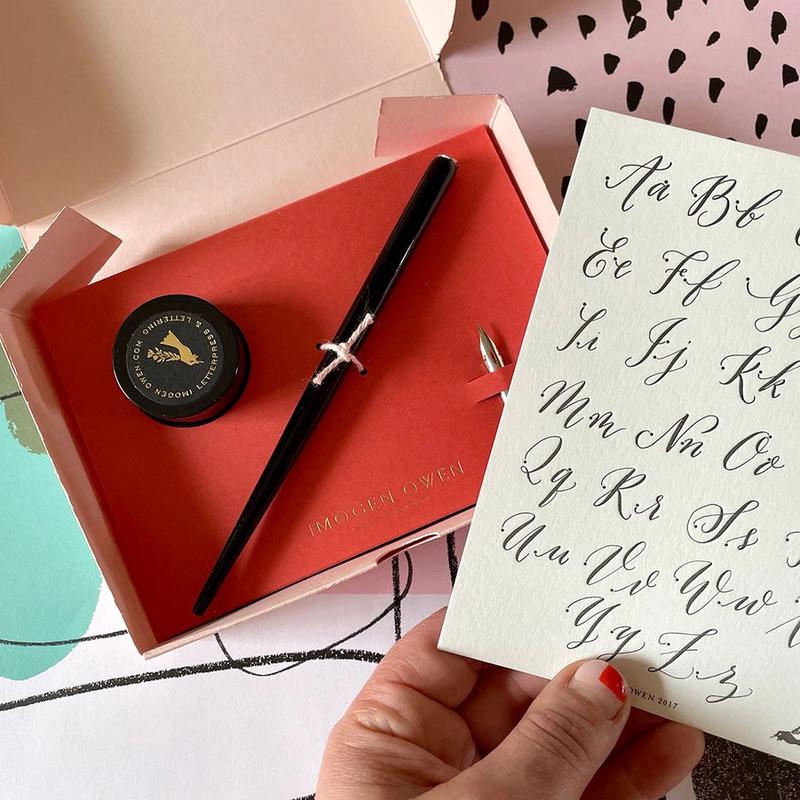 IMOGEN OWEN LETTERPRESS & LETTERING
OWEN.COM
IMOGEN OWEN
Aa Bb
Ee Ff Gg
Ii Jj Kk
Mm Nn Oo
Qq Rr Ss
Uu Vv Ww
Yy Zz
OWEN 2017